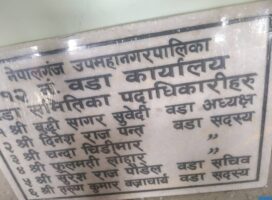 नेपालगंज उपमहानगरपालिका
१२ नं. वडा कार्यालय
समितिका पदाधिकारीहरु
१ श्री बुद्धी सागर सुवेदी वडा अध्यक्ष
२ श्री दिनेश राज पन्त वडा सदस्य
३ श्री चन्दा चिडीमार ,,
४ श्री फुलमती लोहार ,,
५ श्री सुरेश राज पौडेल वडा सचिव
६ श्री तरुण कुमार बज्राचार्य वडा सदस्य